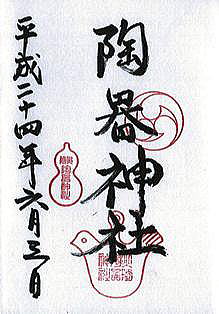 陶器神社
平成二十四年六月三日